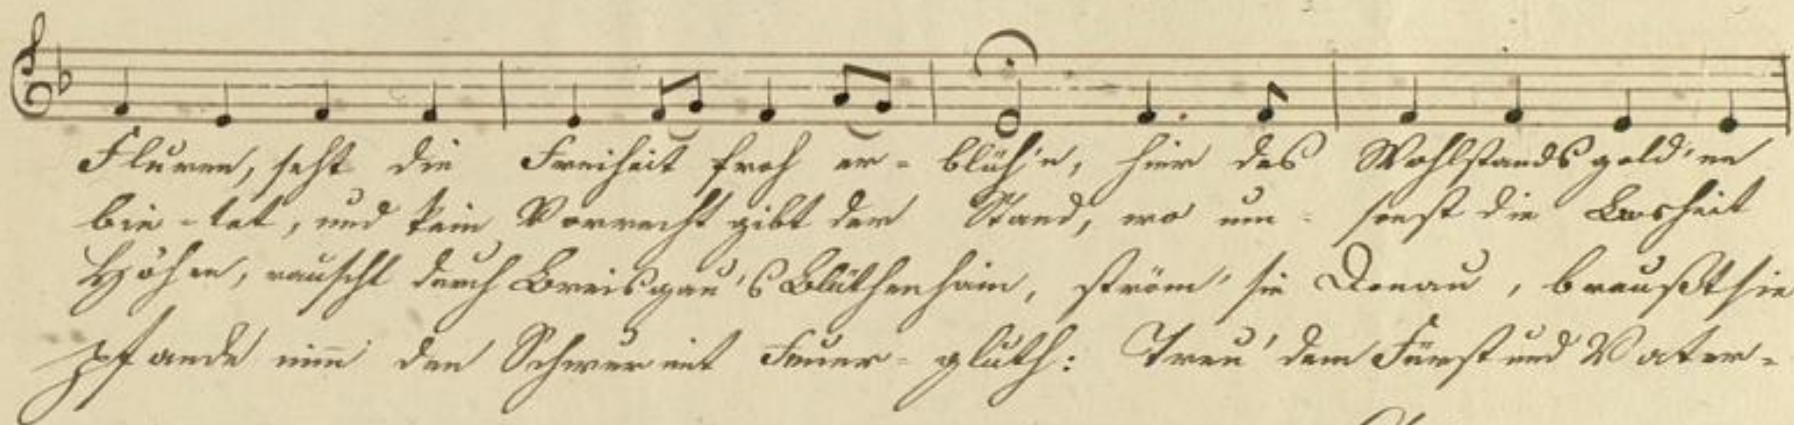 Fluren, seht die Freiheit froh er- blüh'n, hier des Wohlstands gold'ne
bie-tet, und kein Vorrecht gibt der Stand, wo um- sonst die Bosheit
Höhen, rauscht durch Breisgau's Blüthenhain, ström' sie Donau, braußt sie
pfande nim̅ den Schwur mit Feuer- gluth: Treu' dem Fürst und Vater-